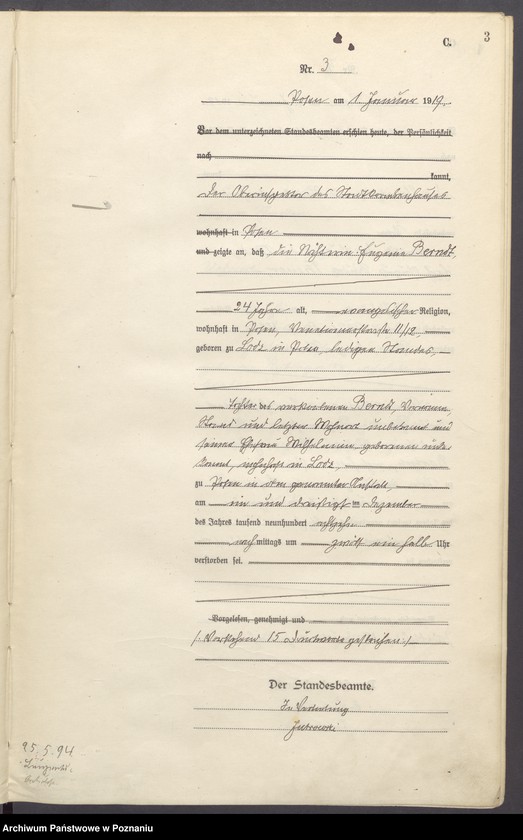 C. 3
Nr. 3
Posen am 1. Januar 1919.
Vor dem unterzeichneten Standesbeamten erschien heute, der Persönlichkeit
nach
kannt,
Der Oberinspektor des Stadtkrankenhauses
wohnhaft in Posen
und zeigte an, daß die Näherin Eugenie Berndt,
24 Jahre alt, evangelischer Religion,
wohnhaft in Posen, Venetianerstrasse 11/12,
geboren zu Lodz in Polen, ledigen Standes,
Tochter des verstorbenen Berndt, Vorname,
Stand und letzter Wohnort unbekannt und
seiner Ehefrau Wilhelmine geborenen unbe-
kannt, wohnhaft in Lodz,
zu Posen in der genannten Anstalt,
am ein und dreißigsten Dezember
des Jahres tausend neunhundert achtzehn
nachmittags um zwölf ein halb Uhr
verstorben sei.
Vorgelesen, genehmigt und
/: Vorstehend 15 Druckworte gestrichen :/
Der Standesbeamte.
In Vertretung
25.5.94
Archiwum Państwowe w Poznaniu